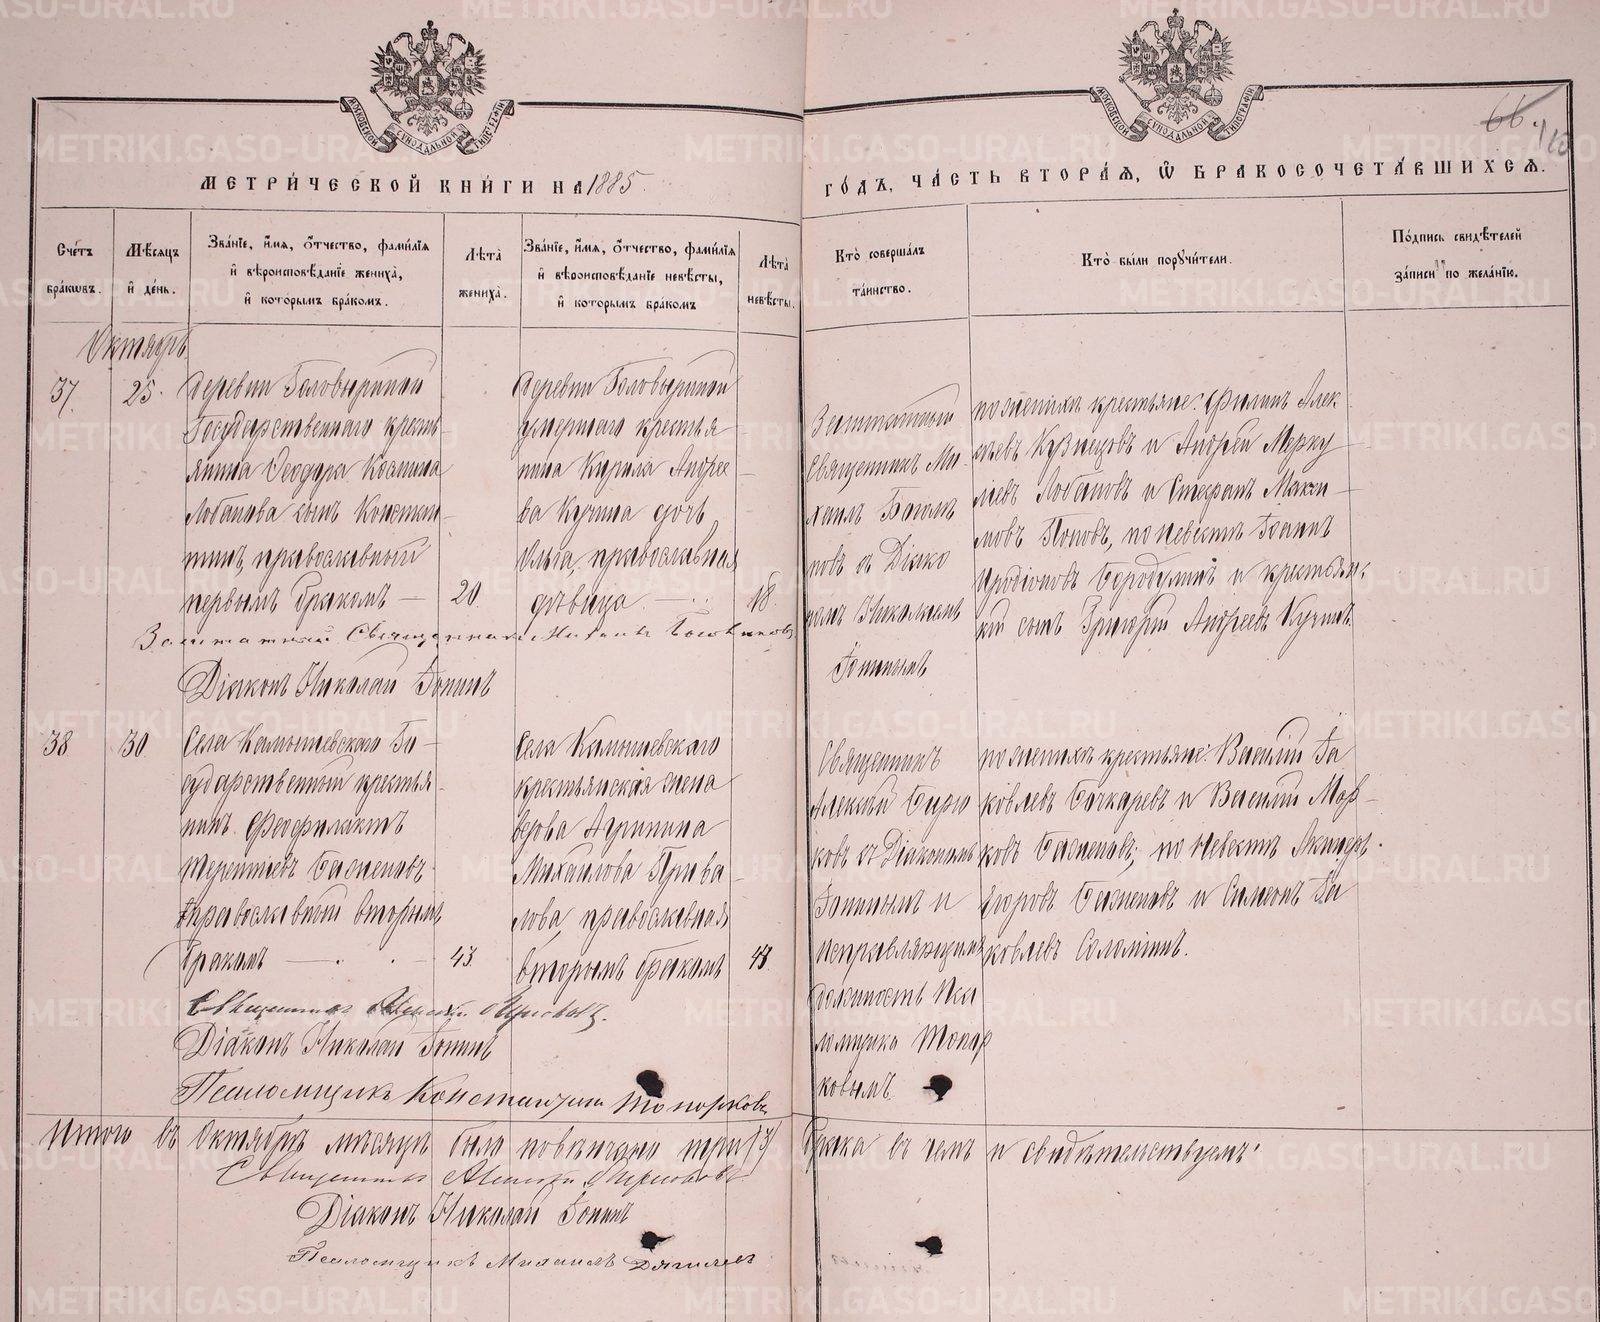 МЕТРИ́ЧЕСКОЙ КНИ́ГИ НА 1885
ГО́ДЪ, ЧА́СТЬ ВТОРА́Я, Ѡ҆ БРАКОСОЧЕТА́ВШИХСЯ.
66
Сче́тъ бра́кωвъ.
Мѣ́сяцъ и҆ де́нь.
Зва́нїе, и҆́мя, ѻ҆́тчество, фами́лїя и҆ вѣроисповѣ́данїе жениха̀, и҆ кото́рымъ бра́комъ.
Лѣ́та жениха̀.
Зва́нїе, и҆́мя, ѻ҆́тчество, фами́лїя и҆ вѣроисповѣ́данїе невѣ́сты, и҆ кото́рымъ бра́комъ
Лѣ́та невѣ́сты.
Кто̀ соверша́лъ та́инство.
Кто̀ бы́ли поручи́тели.
По́дпись свидѣ́телей за́писи по жела́нїю.
Октябрь
37.
25.
Деревни Головыриной
Государственнаго кресть-
янина Ѳеодора Козмина
Лобанова сынъ Констан-
тинъ, православный
первымъ бракомъ —
20.
Деревни Головыриной
умершаго крестья-
нина Кирила Андрее-
ва Кузина дочь
Ольга, православная
дѣвица. —
18.
Заштатный
Священникъ Ми-
хаилъ
новъ съ Діако
номъ Николаемъ
Гонинымъ
по женихѣ крестьяне: Филипъ Алек
сѣевъ Кузнецовъ и Андрей Мерку-
ліевъ Лобановъ и Стефанъ Макси-
мовъ Поповъ, по невѣстѣ Іоаннъ
Иродіоновъ Бородулинъ и крестьянс
кій сынъ Григорій Андреевъ Кузинъ.
Заштатный Священникъ Михаилъ
Діаконъ Николай Гонинъ
38
30.
Села Камышевскаго Го-
сударственный крестья-
нинъ Феофилактъ
Терентіевъ Баженовъ
православный вторымъ
бракомъ —
43.
Села Камышевскаго
крестьянская жена
вдова Агрипина
Михаилова Прива-
лова, православная
вторымъ бракомъ
43.
Священникъ
Алексій Бирю
ковъ съ Діакономъ
Гонинымъ и
исправляющимъ
должность Пса
ломщика Топор
ковымъ
по женихѣ крестьяне: Василій Іа
ковлевъ Бочкаревъ и Василій Мар-
ковъ Баженовъ; по невѣстѣ
Егоровъ Баженовъ и Симеонъ Іа
ковлевъ Соломинъ.
Священникъ Алексій Бирюковъ.
Діаконъ Николай Гонинъ
Псаломщикъ Константинъ Топорковъ
Итого въ Октябрѣ мѣсяцѣ было повѣнчано три (3) брака въ чемъ и свидѣтельствуемъ:
Священникъ Алексій Бирюковъ
Діаконъ Николай Гонинъ
Псаломщикъ Михаилъ Дягилевъ
METRIKI.GASO-URAL.RU